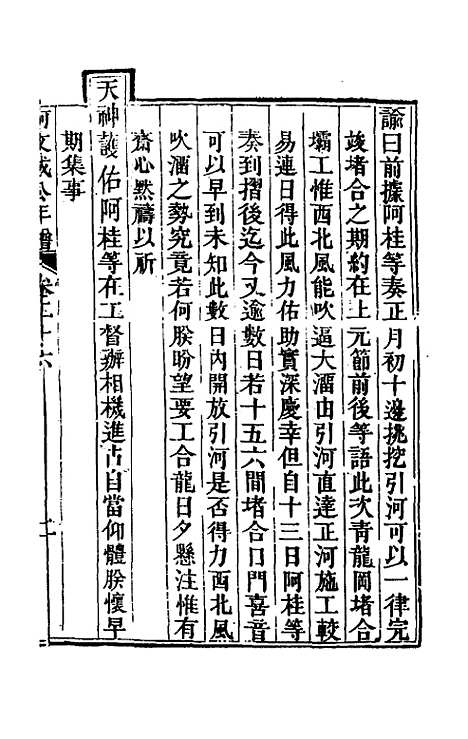 諭曰前據阿桂等奏正月初十邊挑挖引河可以一律完
竣堵合之期約在上元節前後等語此次青龍岡堵合
壩工惟西北風能吹逼大溜由引河直達正河施工較
易連日得此風力佑助實深慶幸但自十三日阿桂等
奏到摺後迄今又逾數日若十五六間堵合口門喜音
可以早到未知此數日內開放引河是否得力西北風
吹溜之勢究竟若何朕盼望要工合龍日夕懸注惟有
齋心默禱以祈
天神護佑阿桂等在工督辦相機進占自當仰體朕懷早
期集事
阿文成公年譜 卷三十六 二